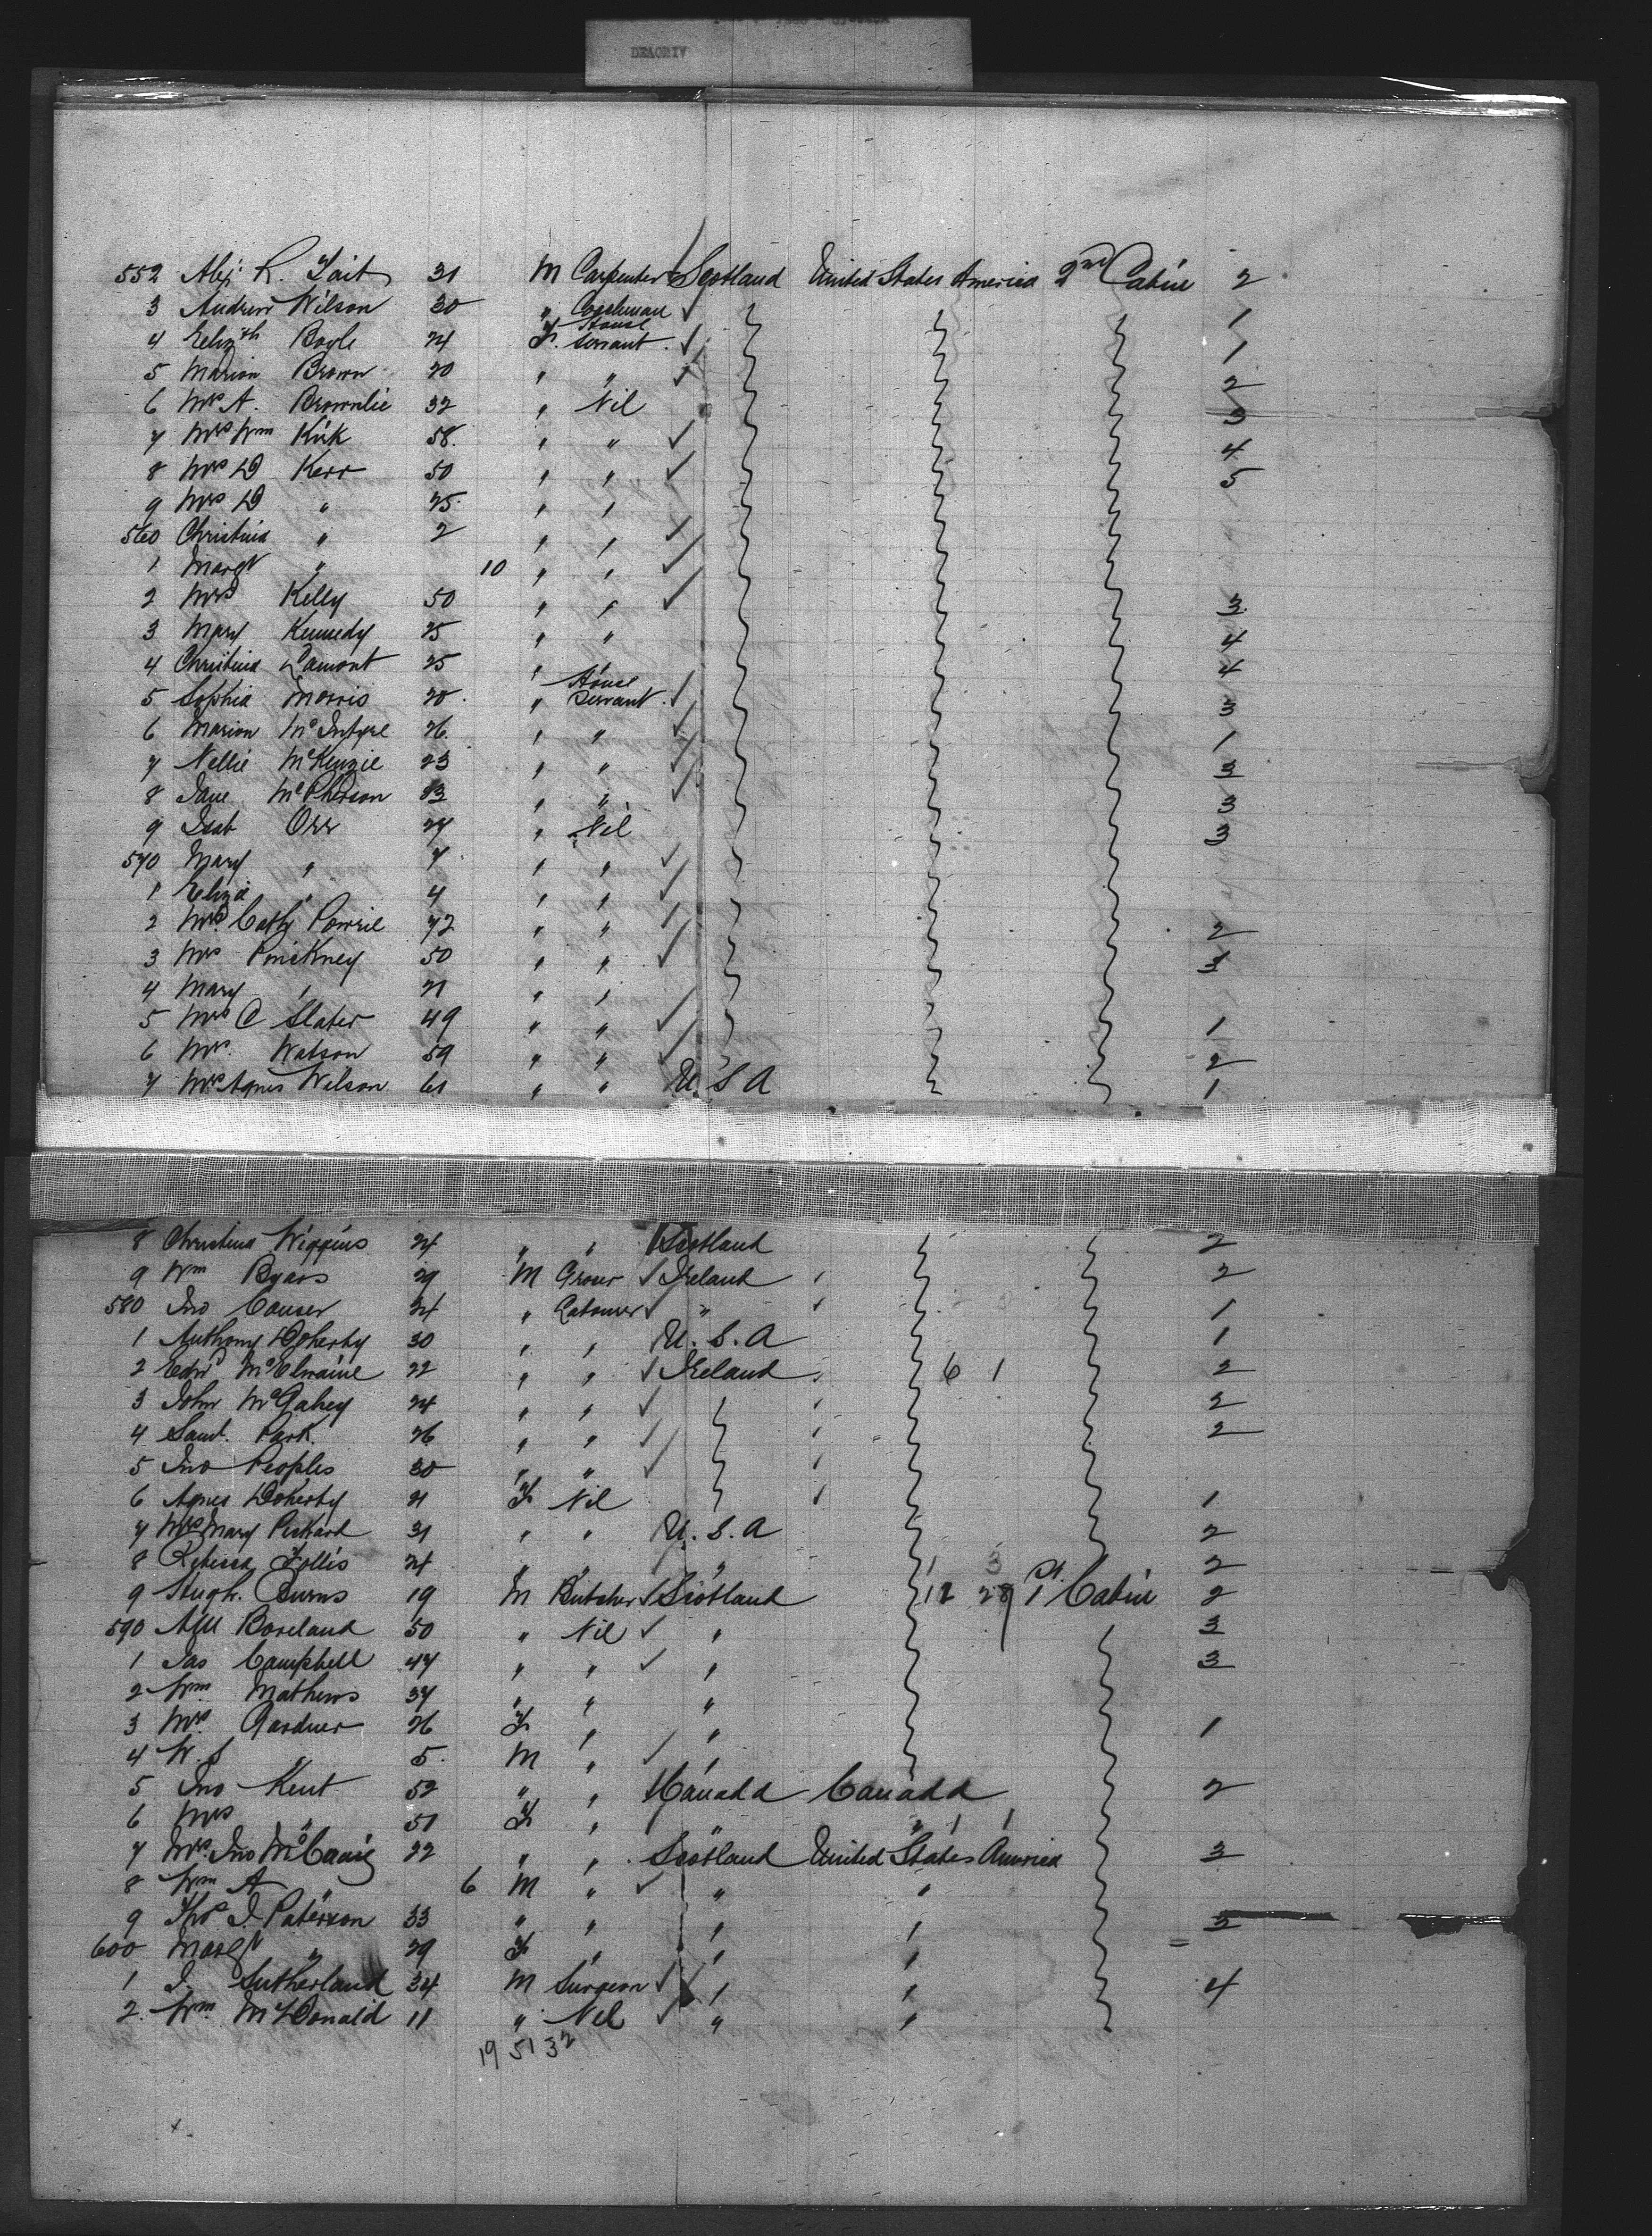 552 Alex R. Tait 31 M Carpenter Scotland United States America 2nd Cabin 2
3 Andrew Wilson 30 " Coachman ✓ 1
4 Elizth Boyle 24 F. House Servant. ✓ 1
5 Marion Brown 20 " " ✓ 2
6 Mrs A. Brownlie 32 " Nil 3
7 Mrs Wm Kirk 58. " " ✓ 4
8 Mrs D Kerr 50 " " ✓ 5
9 Mrs D " 25 " "
560 Christina " 2 " " ✓
1 Margt " 10 " " ✓
2 Mrs Kelly 50 " " ✓ 3
3 Mary Kennedy 25 " " 4
4 Christina Lamont 25 " 4
5 Sophia Morris 20 " House Servant. ✓ 3
6 Marion McIntyre 26. " " ✓ 1
7 Nellie McKenzie 23 " " ✓ 3
8 Jane McPherson " " ✓ 3
9 Isab Orr 27 " Nil 3
570 Mary " 7 " " ✓
1 Eliza " 4 " " ✓
2 Mrs. Cath Powrie 72 " " ✓ 2
3 Mrs Pinckney 50 " " ✓ 3
4 Mary " 21 " "
5 Mrs C Slater 49 " " ✓ 1
6 Mrs. Watson 59 " " ✓ 2
7 Mrs Agnes Wilson 61 " " U S A 1
8 Christina Wiggins 24 " " Scotland 2
9 Wm Byars 29 M Grocer ✓ Ireland " 2
580 Jno Causer 24 " Labourer ✓ " " 1
1 Anthony Doherty 30 " " U. S. A 1
2 Edwd McElwaine 22 " " ✓ Ireland " 6 1 2
3 John McGahey 24 " " ✓ " 2
4 Saml. Park. 26 " " ✓ " 2
5 Jno Peoples 30 " " ✓ "
6 Agnes Doherty 21 F Nil " 1
7 Mrs Mary Pickard 31 " " U. S. A 2
8 Rebecca Follis 24 " " " 3 2
9 Hugh. Burns 19 M Butcher ✓ Scotland 12 28 1st Cabin 2
590 Boreland 50 " Nil ✓ " 3
1 Jas Campbell 47 " " ✓ " 3
2 Wm. Mathews 37 " " "
3 Mrs. Gardner 26 F " " 1
4 W. S " 5. M " ✓ "
5 Jno Kent 52 " " Canada Canada 2
6 Mrs " 51 F " " " 1 1
7 Mrs. Jno 22 " " Scotland United States America 3
8 Wm A " 6 M " ✓ " "
9 Thos J. Paterson 33 " " " " 3
600 Margt " 29 F " " "
1 J. Sutherland 34 M Surgeon ✓ " " 4
2. Wm. McDonald 11 " Nil ✓ " "
19 51 32